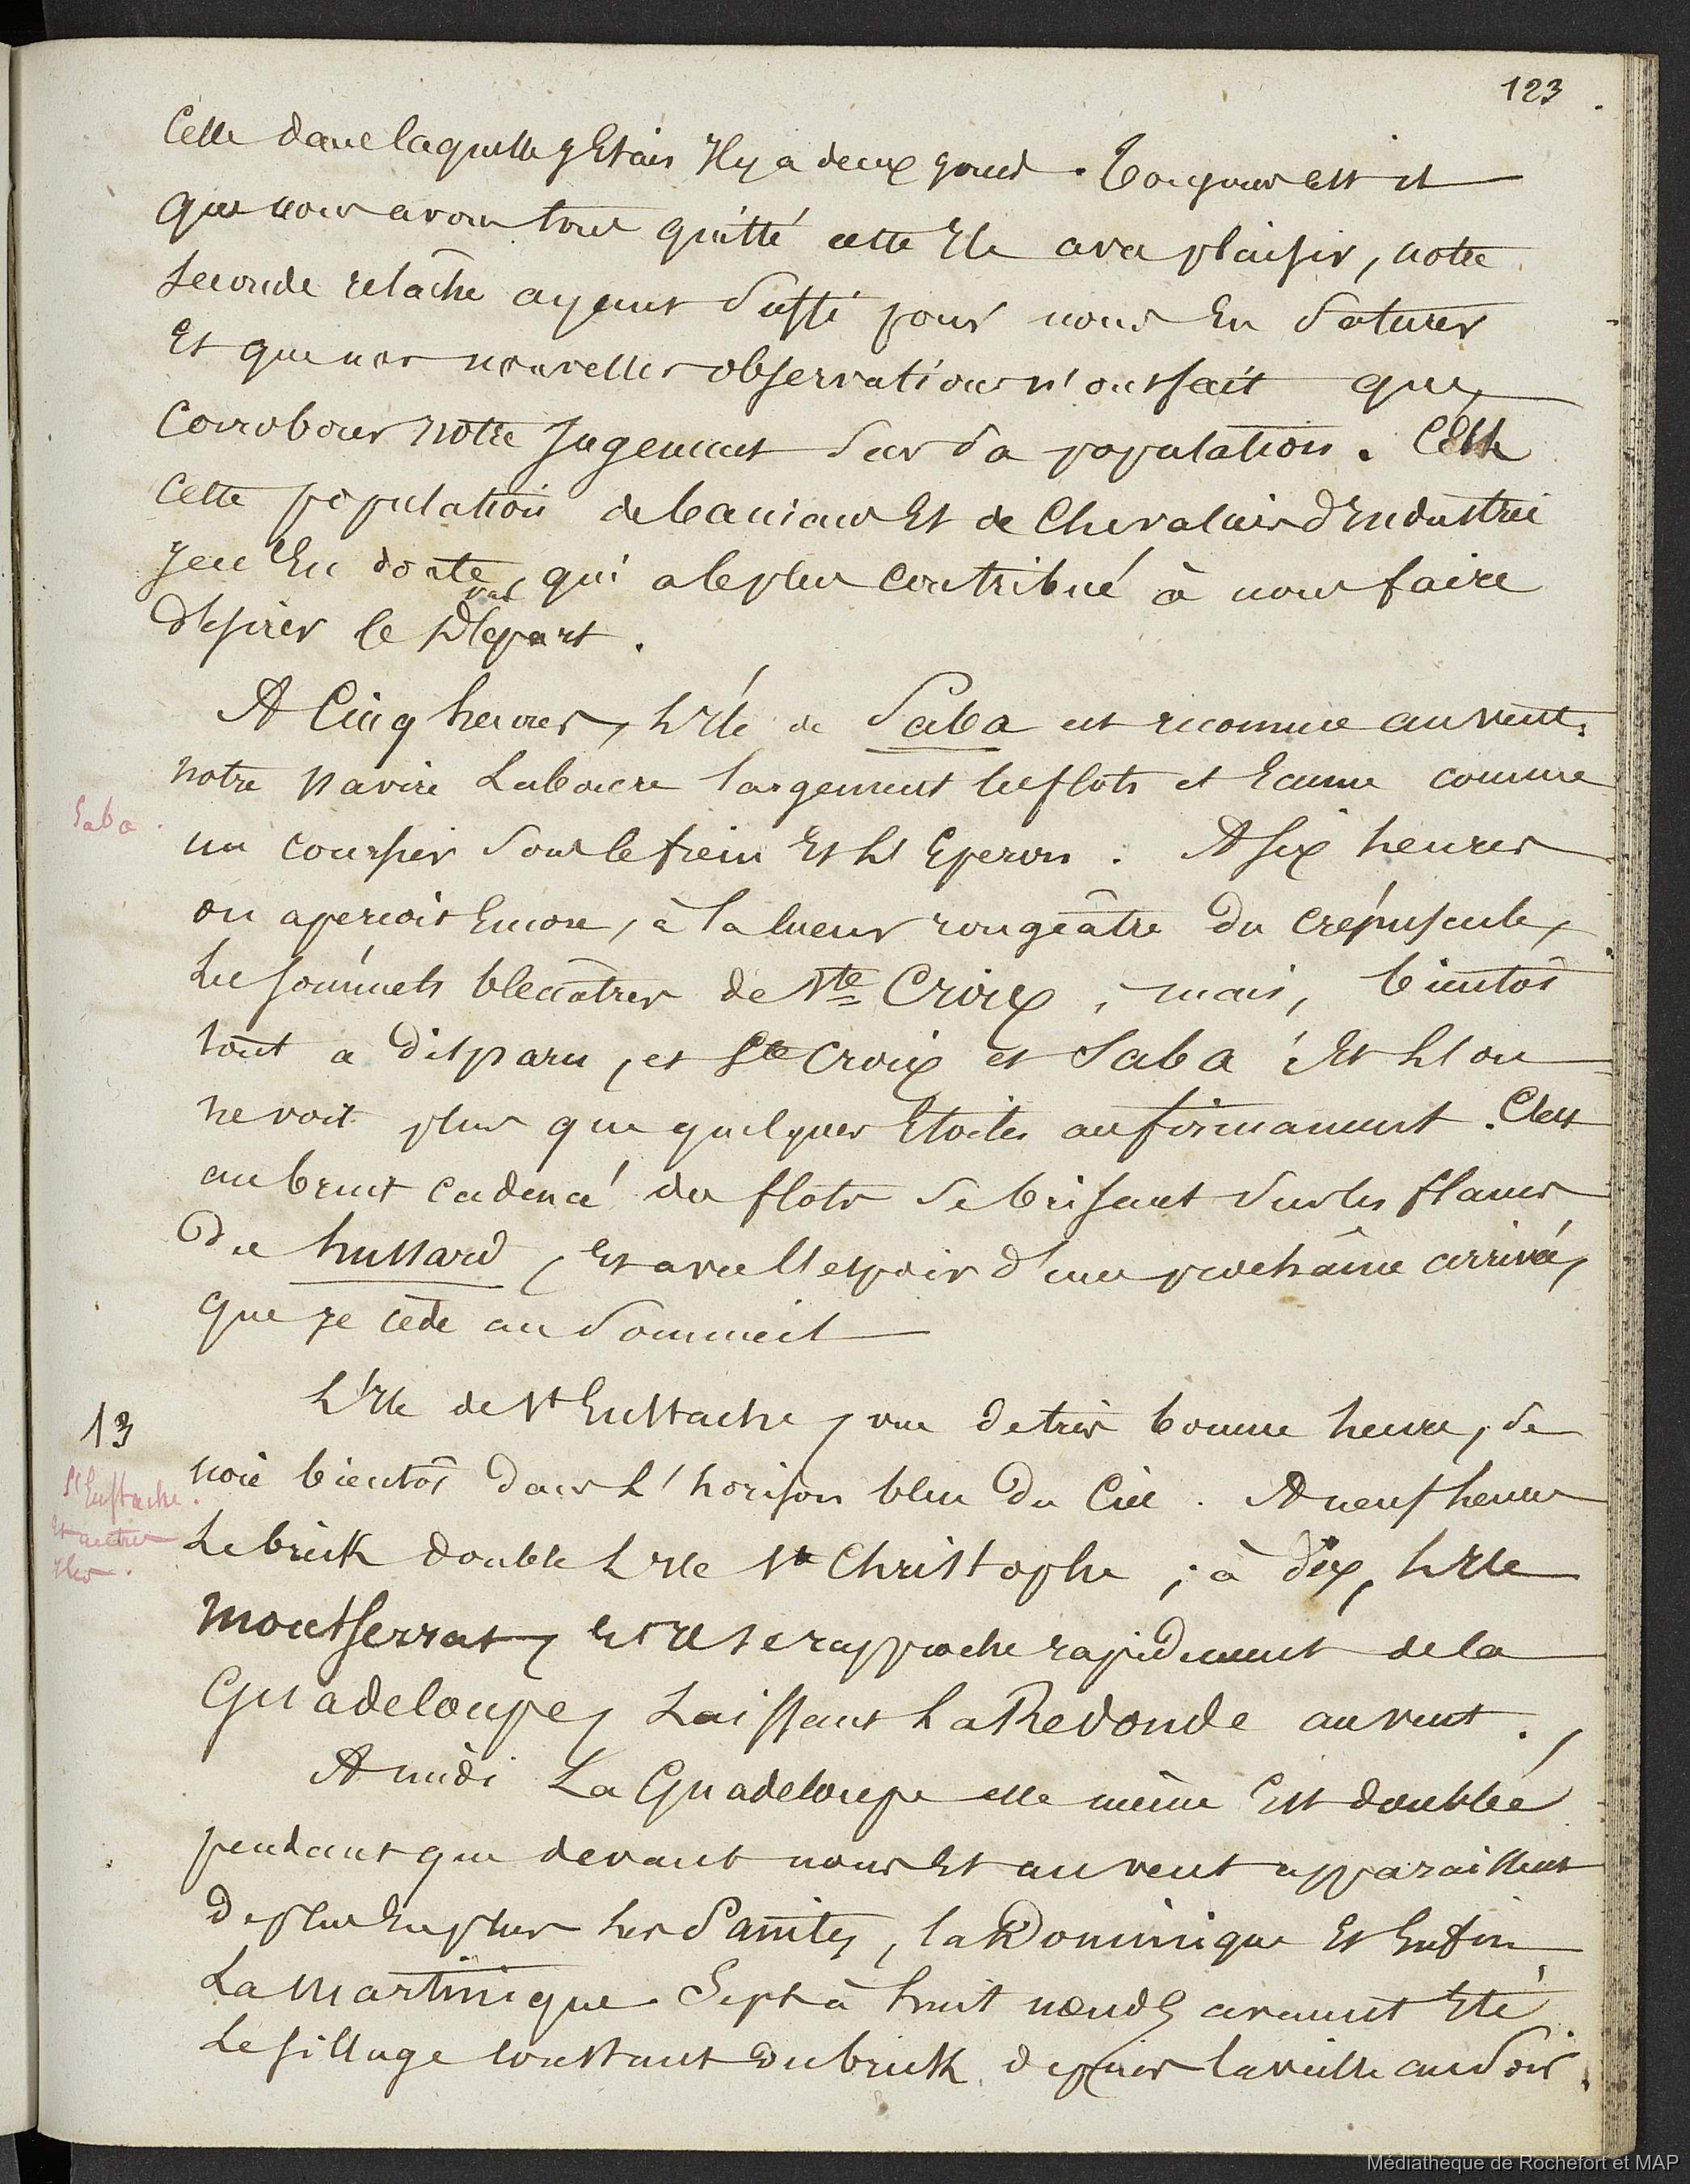 123
Celle dans laquelle j'Etais Il y a deux jours. Toujours est il
que nous avons tous quitté cette Ile avec plaisir, notre
seconde relâche ayant suffi pour nous En saturer
Et que nos nouvelles observations n'ont fait que
corroborer notre Jugement sur sa population. C'Est
cette population de et de Chevaliers d'Industrie
sans En doute, qui a le plus contribué à nous faire
désirer le Départ.
A Cinq heures, L'Ile de Saba est reconnue au vent.
notre navire Laboure largement les flots et Ecume comme
Saba.
un coursier sous le frein Et L'Eperon. A six heures
on aperçoit Encore, à la lueur rougeâtre du crépuscule,
Les sommets bleuâtres de Ste Croix, mais, bientôt
tout a disparu, et Ste Croix et Saba, Et L'on
ne voit plus que quelques Etoiles au firmament. C'est
au bruit cadencé des flots se brisant sur les flancs
Du hussard, Et avec l'espoir d'une prochaine arrivée,
que je cède au sommeil
13
L'Ile de St Eustache, vue de très bonne heure, se
noie bientôt dans L'horison bleu du Ciel. A neuf heures
St Eustache.
Et autres
Iles.
Le brick double L'Ile St Christophe ; à dix, L'Ile
Montserrat, Et Il se rapproche rapidement de la
Guadeloupe, Laissant La Redonde au vent.
A midi La Guadeloupe elle même Est doublée
pendant que devant nous Et au vent apparaissent
De plus En plus Les Saintes, la Dominique Et Enfin
La Martinique. Sept à huit nœuds avaient Eté
Le sillage constant du brick depuis la veille au soir.
Médiathèque de Rochefort et MAP